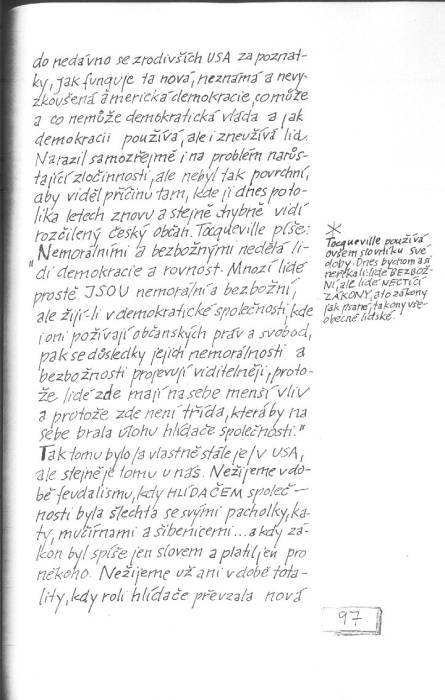 do nedávno se zrodivších USA za poznat-
ky, jak funguje ta nová, neznámá a nevy-
zkoušená americká demokracie, co může
a co nemůže demokratická vláda a jak
demokracii používá, ale i zneužívá lid.
Narazil samozřejmě i na problém narůs-
tající zločinnosti, ale nebyl tak povrchní,
aby viděl příčinu tam, kde ji dnes po to-
lika letech znovu a stejně chybně vidí
rozčilený český občan. Tocqueville píše:
"Nemorálními a bezbožnými nedělá li-
di demokracie a rovnost. Mnozí lidé
prostě JSOU nemorální a bezbožní,
ale žijí-li v demokratické společnosti, kde
i oni požívají občanských práv a svobod,
pak se důsledky jejich nemorálnosti a
bezbožnosti projevují viditelněji, proto-
že lidé zde mají na sebe menší vliv
a protože zde není třída, která by na
sebe brala úlohu hlídače společnosti."
Tak tomu bylo (a vlastně stále je) v USA,
ale stejně je tomu u nás. Nežijeme v do-
bě feudalismu, kdy HLÍDAČEM společ-
nosti byla šlechta se svými pacholky, ka-
ty, mučírnami a šibenicemi... a kdy zá-
kon byl spíše jen slovem a platil jen pro
někoho. Nežijeme už ani v době tota-
lity, kdy roli hlídače převzala nová
*
Tocqueville používá
ovšem slovníku své
doby. Dnes bychom asi
neříkali: lidé BEZBOŽ-
NÍ, ale lidé NECTÍCÍ
ZÁKONY, a to zákony
jak psané, tak ony vše-
obecně lidské.
97